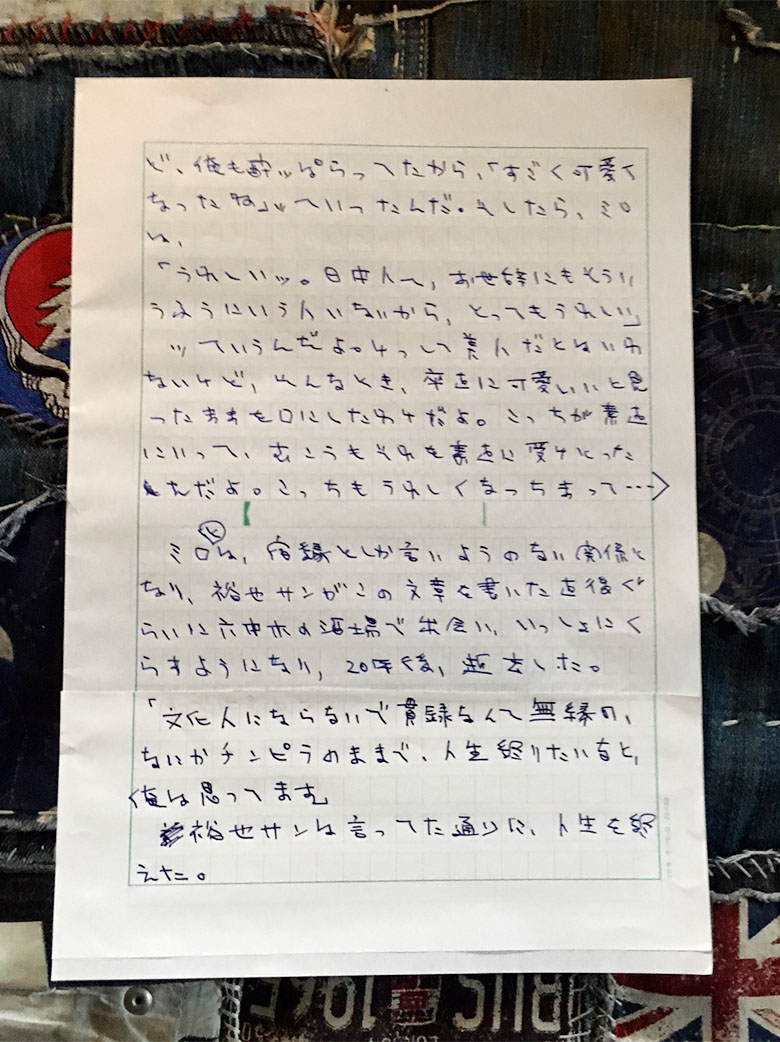 ど、俺も酔ッぱらってたから、「すごく可愛く
なったね」ッていったんだ。そしたら、ミロ
は、
「うれしいッ。日本人で、お世辞にもそうい
うふうにいう人いないから、とってもうれしい」
ッていうんだよ。けっして美人だとはいわ
ないけど、そんなとき、率直に可愛いいと思
ったままを口にしたわけだよ。こっちが素直
にいって、むこうもそれを素直に受けとった
んだよ。こっちもうれしくなっちまって…>
ミロとは、宿縁としか言いようのない関係に
なり、裕也サンがこの文章を書いた直後ぐ
らいに六本木の酒場で出会い、いっしょにく
らすようになり、20年後、逝去した。
「文化人にならないで貫録なんて無縁の、
なにかチンピラのままで、人生終りたいなと、
俺は思ってます」
裕也サンは言ってた通りに、人生を終
えた。